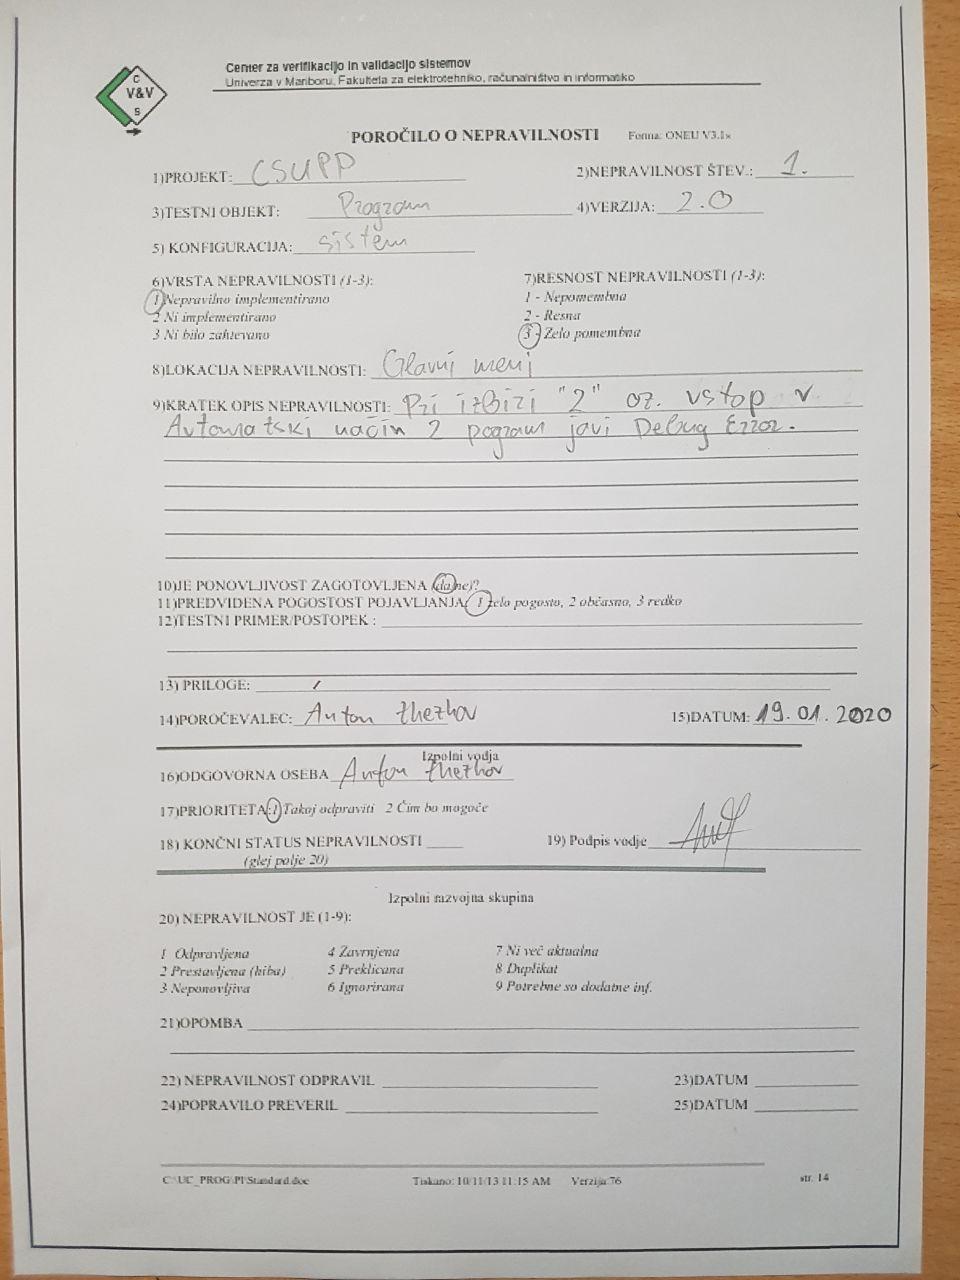 C
V&V
S
Center za verifikacijo in validacijo sistemov
Univerza v Mariboru, Fakulteta za elektrotehniko, računalništvo in informatiko
POROČILO O NEPRAVILNOSTI Forma: ONEU V3.1x
1)PROJEKT: CSUPP 2)NEPRAVILNOST ŠTEV.: 1.
3)TESTNI OBJEKT: Program 4)VERZIJA: 2.0
5) KONFIGURACIJA: sistem
6)VRSTA NEPRAVILNOSTI (1-3): 7)RESNOST NEPRAVILNOSTI (1-3):
1 Nepravilno implementirano 1 - Nepomembna
2 Ni implementirano 2 - Resna
3 Ni bilo zahtevano 3 - Zelo pomembna
8)LOKACIJA NEPRAVILNOSTI: Glavni meni
9)KRATEK OPIS NEPRAVILNOSTI: Pri izbiri "2" oz. vstop v
Avtomatski način 2 pogram javi Debug Error.
10)JE PONOVLJIVOST ZAGOTOVLJENA (da/ne)?
11)PREDVIDENA POGOSTOST POJAVLJANJA: 1 zelo pogosto, 2 občasno, 3 redko
12)TESTNI PRIMER/POSTOPEK :
13) PRILOGE: /
14)POROČEVALEC: Anton 15)DATUM: 19.01.2020
Izpolni vodja
16)ODGOVORNA OSEBA Anton
17)PRIORITETA: 1 Takoj odpraviti 2 Čim bo mogoče
18) KONČNI STATUS NEPRAVILNOSTI 19) Podpis vodje
(glej polje 20)
Izpolni razvojna skupina
20) NEPRAVILNOST JE (1-9):
1 Odpravljena 4 Zavrnjena 7 Ni več aktualna
2 Prestavljena (hiba) 5 Preklicana 8 Duplikat
3 Neponovljiva 6 Ignorirana 9 Potrebne so dodatne inf.
21)OPOMBA
22) NEPRAVILNOST ODPRAVIL 23)DATUM
24)POPRAVILO PREVERIL 25)DATUM
C:\UC_PROG\PI\Standard.doc Tiskano: 10/11/13 11:15 AM Verzija:76 str. 14